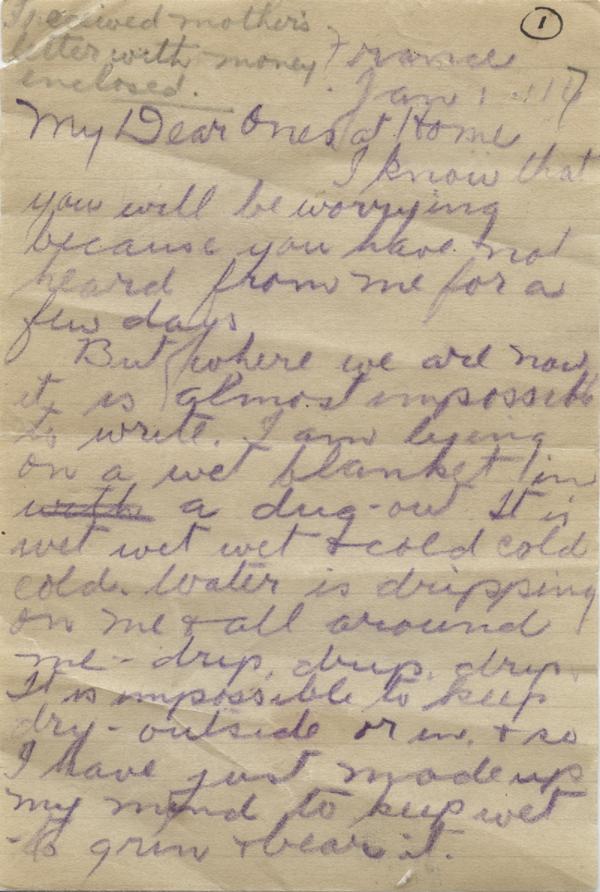 I received mother's
letter with money
enclosed.
1
France
Jan 1 1917
My Dear Ones at Home
I know that
you will be worrying
because you have not
heard from me for a
few days
But where we are now
it is almost impossible
to write. I am lying
on a wet blanket in
with a dug-out It is
wet wet wet & cold cold
cold. Water is dripping
on me & all around
me - drip, drip, drip.
It is impossible to keep
dry - outside or in, & so
I have just made up
my mind to keep wet
- & grin & bear it.